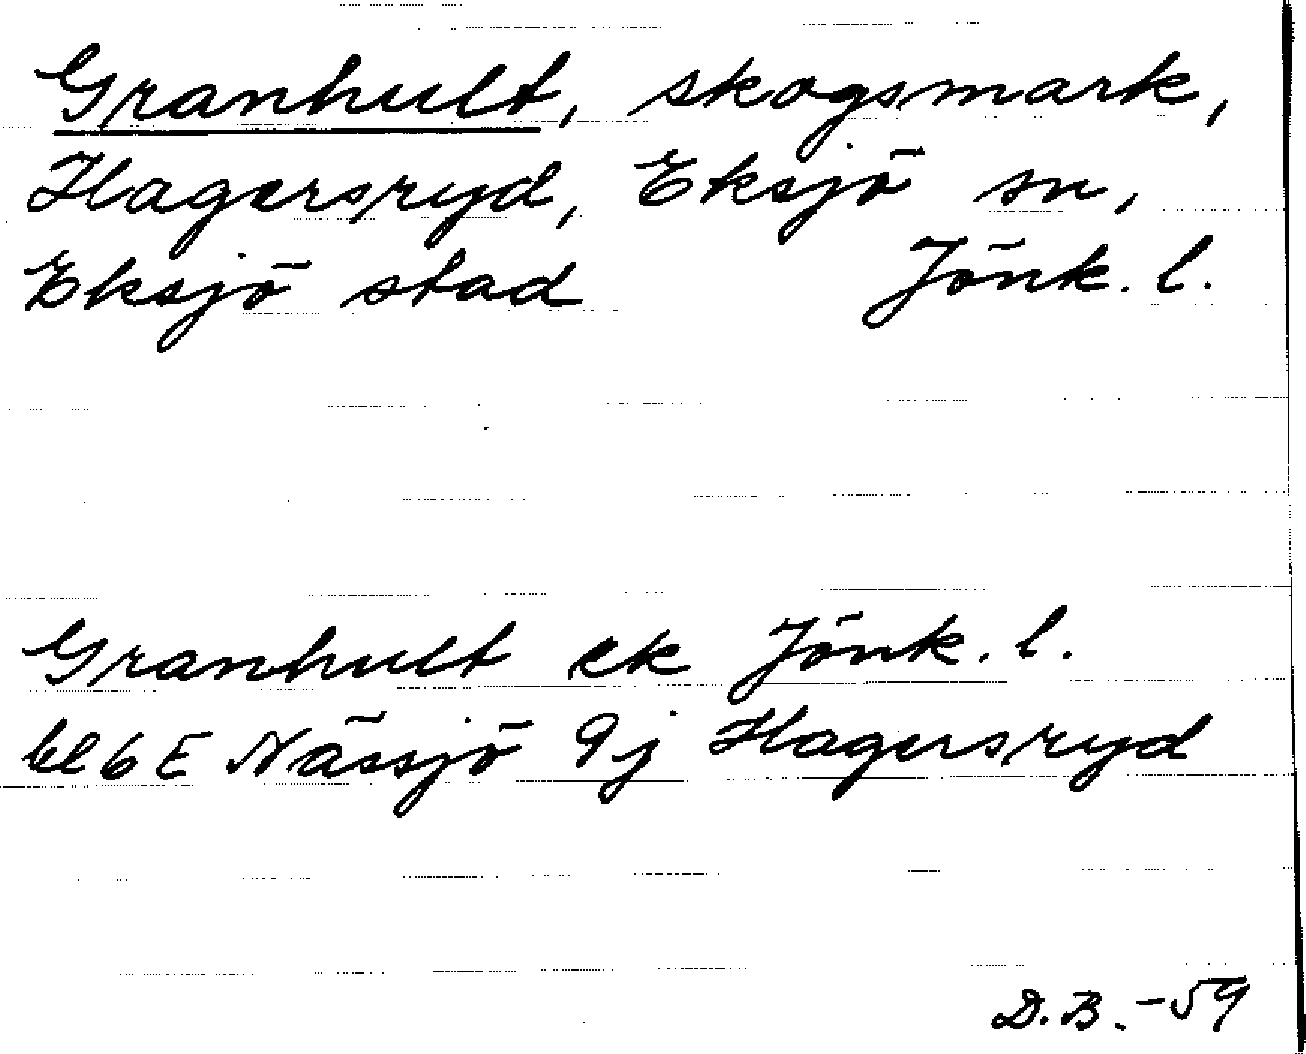 Granhult, skogsmark,
Hagersryd, Eksjö sn,
Eksjö stad Jönk. l.
Granhult ek Jönk. l.
bl 6 E Nässjö 9j Hagersryd
D.B. -59